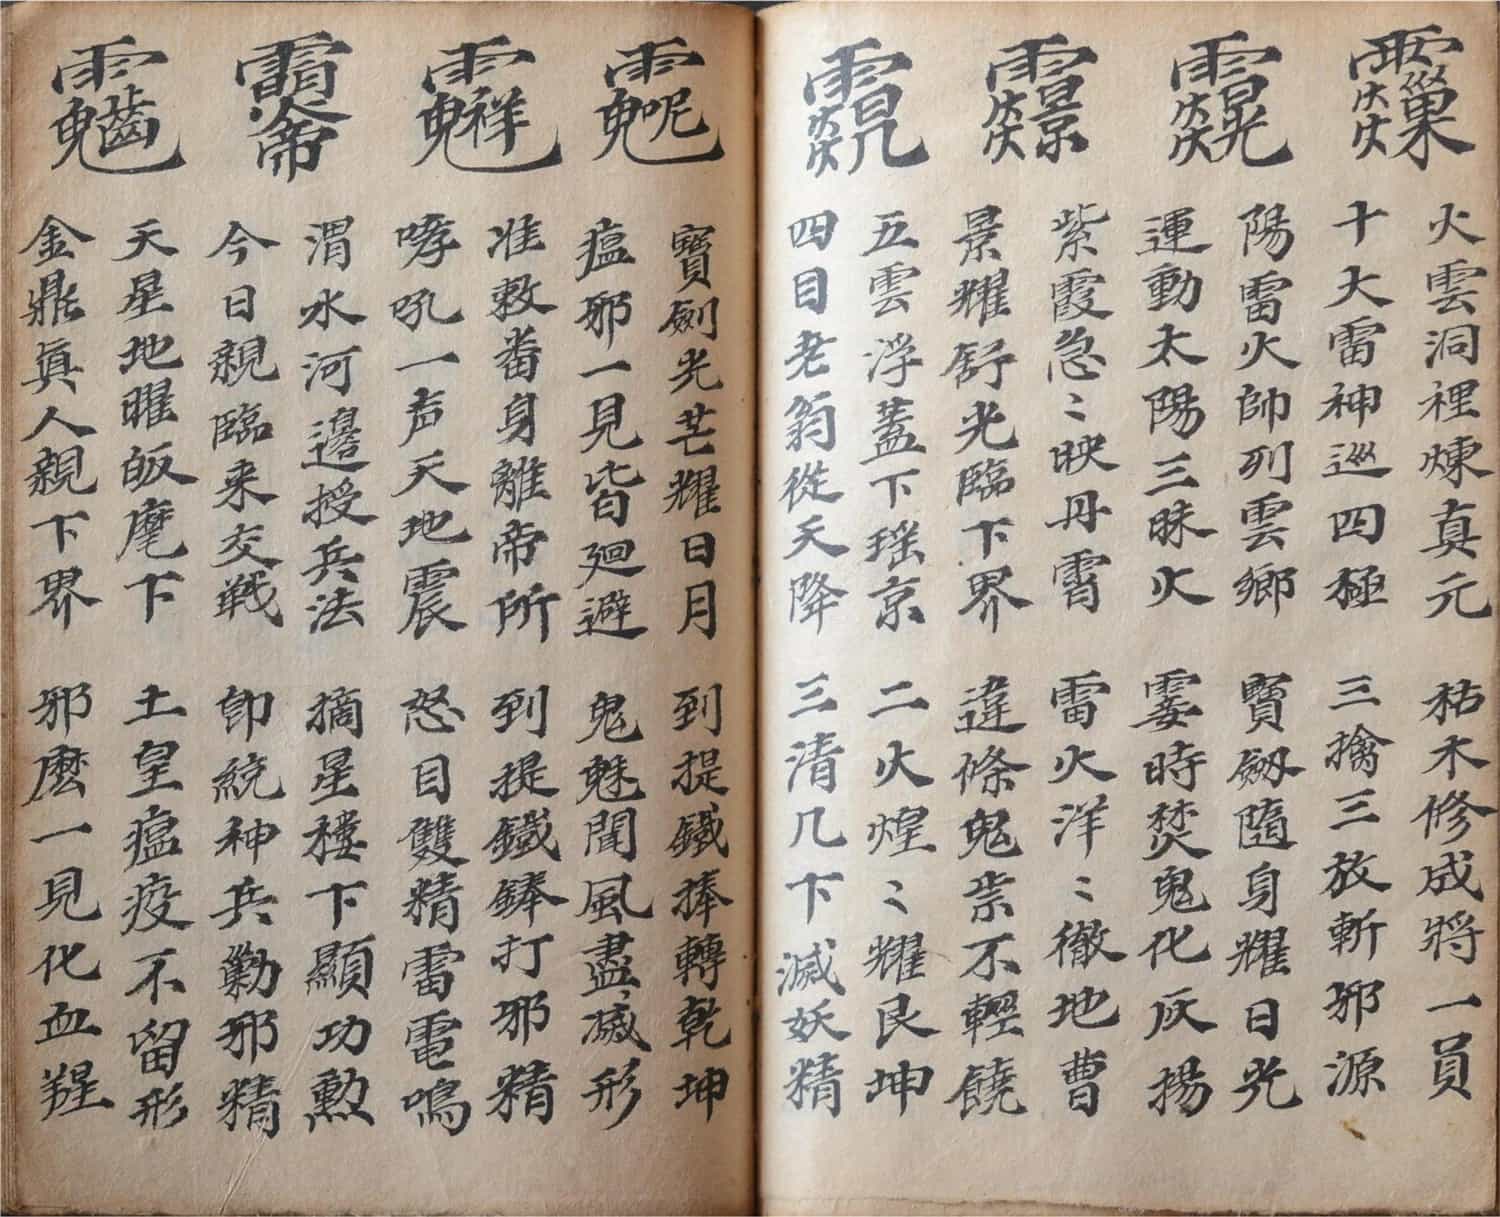 火雲洞裡煉真元 枯木修成將一員
十大雷神巡四極 三擒三放斬邪源
陽雷火帥列雲鄉 寶劔隨身耀日光
運動太陽三昧火 霎時焚鬼化灰揚
紫霞急〻映丹霄 雷火洋〻徹地曹
景耀舒光臨下界 違條鬼祟不輕饒
五雲浮蓋下瑶京 二火煌〻耀艮坤
四目老翁從天降 三清几下滅妖精
寶劍光芒耀日月 到提鐵捧轉乾坤
瘟邪一見皆廻避 鬼魅聞風盡滅形
准敕畨身離帝所 到提鐵打邪精
哮吼一声天地震 怒目雙精雷電鳴
渭水河邊授兵法 摘星楼下顯功勲
今日親臨来交戦 卽統神兵勦邪精
天星地曜皈麾下 土皇瘟疫不留形
金鼎眞人親下界 邪麽一見化血